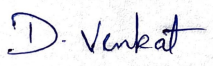 D. Venkat